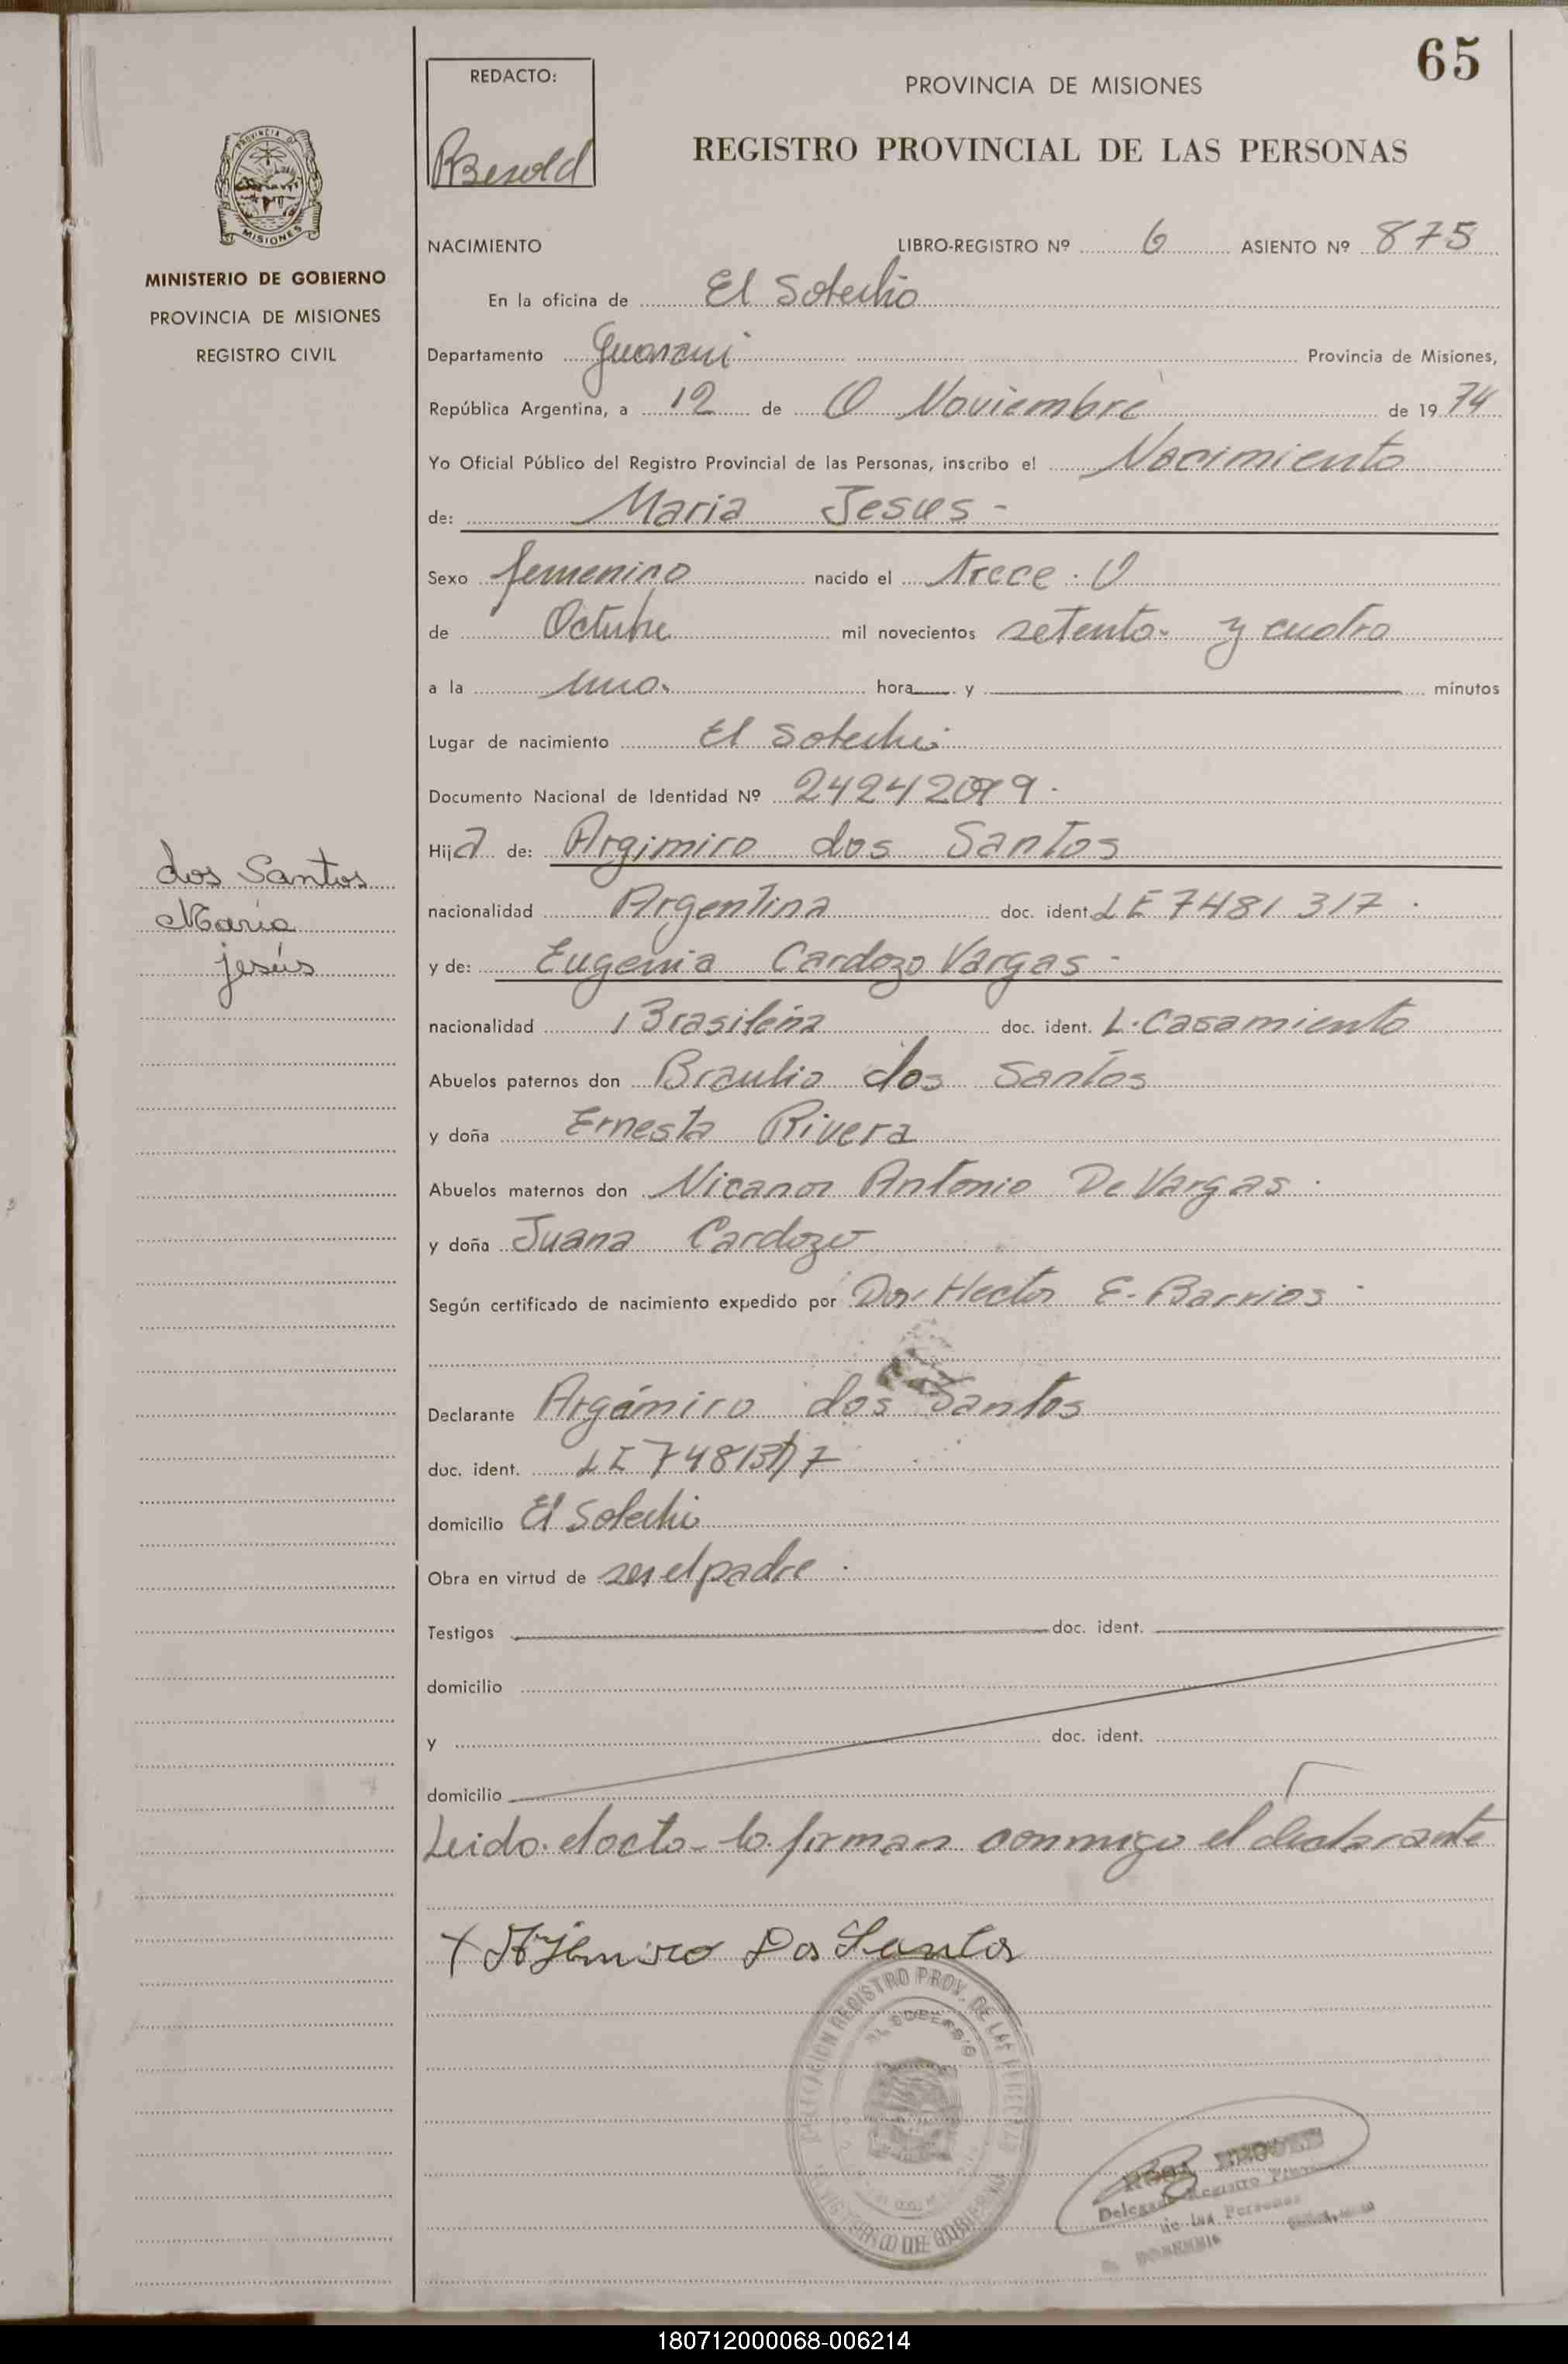 65
REDACTO:
PROVINCIA DE MISIONES
REGISTRO PROVINCIAL DE LAS PERSONAS
PROVINCIA DE
MISIONES
MINISTERIO DE GOBIERNO
PROVINCIA DE MISIONES
REGISTRO CIVIL
NACIMIENTO LIBRO-REGISTRO Nº 6 ASIENTO Nº 875
En la oficina de El Soberbio
Departamento Guarani Provincia de Misiones,
República Argentina, a 12 de Noviembre de 1974
Yo Oficial Público del Registro Provincial de las Personas, inscribo el Nacimiento
de: Maria Jesus -
Sexo femenino nacido el trece
de Octubre mil novecientos setenta y cuatro
a la una hora y minutos
Lugar de nacimiento El Soberbio
Documento Nacional de Identidad Nº
Hija de: Argimiro dos Santos
nacionalidad Argentina doc. ident. LE 7481317
y de: Eugenia Cardozo Vargas -
nacionalidad Brasileña doc. ident. L. Casamiento
Abuelos paternos don Braulio dos Santos
y doña Ernesta Rivera
Abuelos maternos don Nicanor Antonio De Vargas
y doña Juana Cardozo
Según certificado de nacimiento expedido por Dor. Hector E. Barrios
Declarante Argimiro dos Santos
doc. ident.
domicilio El Soberbio
Obra en virtud de ser el padre
Testigos doc. ident.
domicilio
y doc. ident.
domicilio
Leido el acta lo firman conmigo el declarante
dos Santos
María
jesús
REGISTRO PROV. DE LAS PERSONAS
EL SOBERBIO
Delegado Registro Prov.
de las Personas
180712000068-006214